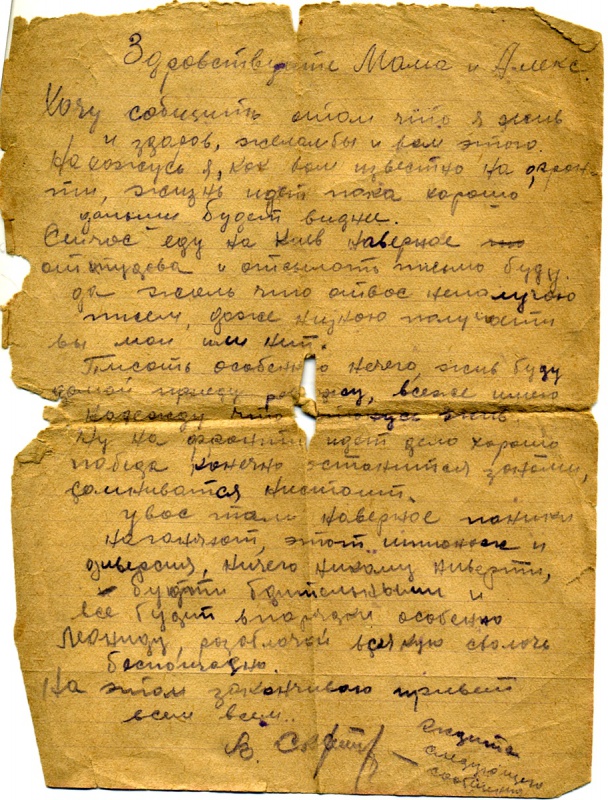 Здровствуите Мама и Алекс.
Хочу собщить отом что я жив
и здаров, желалбы и вам этого.
Нахожусь я, как вам известно на фрон-
ти, жизнь идет пака харошо
дальши будет видне.
Сейчас еду на Киев наверное
оттудова и отсылать письмо буду.
да жаль что отвас неполучаю
писем, даже низнаю получаити
вы маи или нит.
Писать особенно нечего, жив буду
домой приеду, всеже имею
надежду что жив.
Ну на фронти идет дело харошо
победа конечно останится занами,
сомниватся нистоит.
увас там наверное паники
нагоняют, этот шпионаж и
диверсия, ничего никамуниверти,
будти бдительными и
всё будит впорядки особенно
Леониду, розоблочай всякую сволочь
беспощадно.
На этом заканчиваю привет
всем всем..
В.
следующего